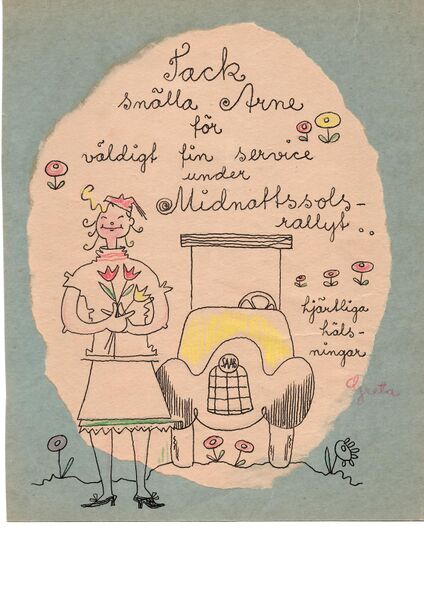 Tack
snälla Arne
för
väldigt fin service
under
Midnattssols-
rallyt..
hjärtliga
häls-
ningar
Greta
SAAB